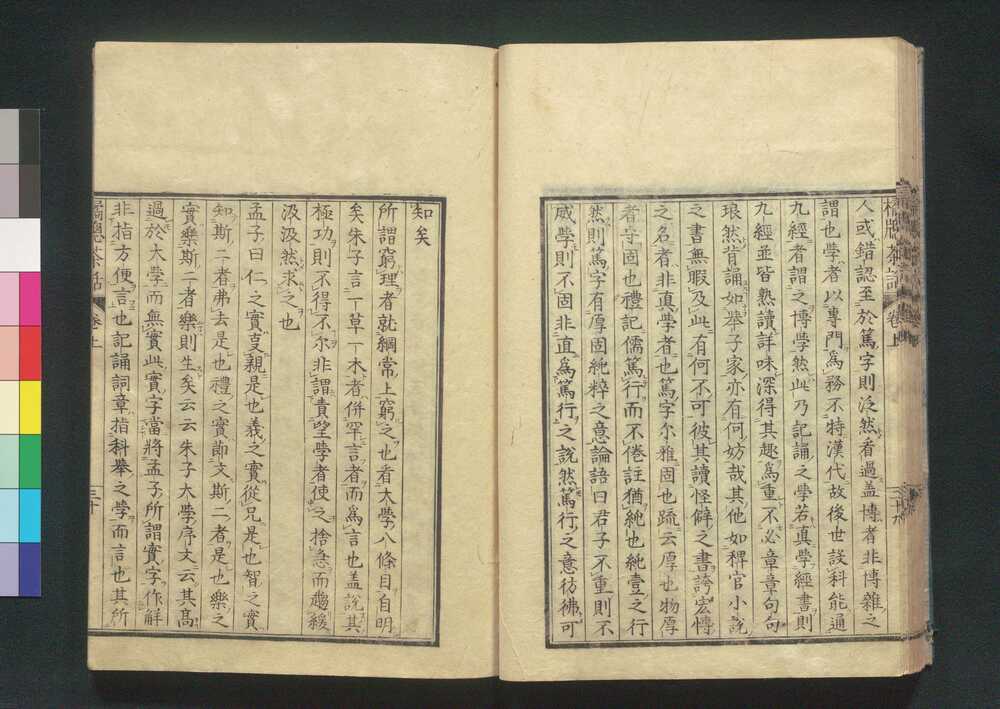 橘牕茶話 卷上 二十九
人或錯認至於篤字則泛然看過盖博者非博雜之
謂也學者以專門為務不特漢代故後世設科能通
九經者謂之博學然此乃記誦之學若真學經書則
九經並皆熟讀詳味深得其趣為重不必章章句句
琅然背誦如舉子家亦有何妨哉其他如稗官小說
之書無暇及此有何不可彼其讀怪僻之書誇宏博
之名者非真學者也篤字尔雅固也疏云厚也物厚
者守固也禮記儒篤行而不倦註猶純也純壹之行
然則篤字有厚固純粹之意論語曰君子不重則不
威學則不固非直為篤行之說然篤行之意彷彿可
知矣
所謂窮理者就綱常上窮之也看大學八條目自明
矣朱子言一草一木者併罕言者而為言也盖說其
極功則不得不尓非謂責望學者使之捨急而趨緩
汲汲然求之也
孟子曰仁之實叓親是也義之實從兄是也智之實
知斯二者弗去是也禮之實節文斯二者是也樂之
實樂斯二者樂則生矣云云朱子大學序文云其高
過於大學而無實此實字當將孟子所謂實字作解
非指方便言也記誦詞章指科舉之學而言也其所
橘牕茶話 卷上 三十